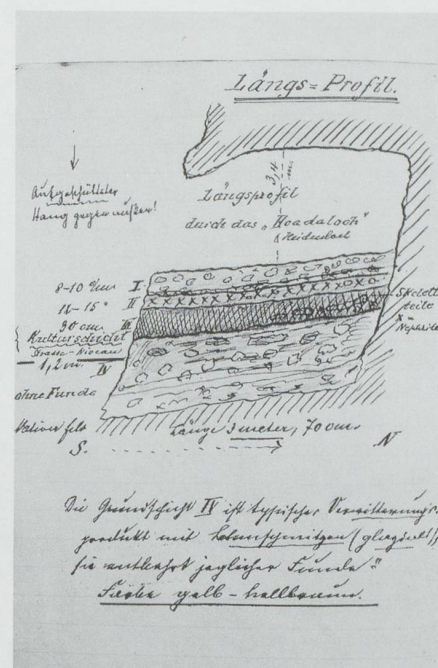 Längs=Profil.
3,4 m
Aufgeschütteter
Hang gegen außen!
Längsprofil
durch das „Hoadaloch"
8-10 cm I
12-15 " II
30 cm III
Kulturschicht
Niveau
1,2 m. IV
ohne Funde
Skelett
teile
x =
Länge 3 meter, 70 cm.
S. N
Die Grundschicht IV ist typisches Verwitterungs-
produkt mit Lehmschmitzen
sie entbehrt jeglicher Funde"
Farbe gelb-hellbraun.